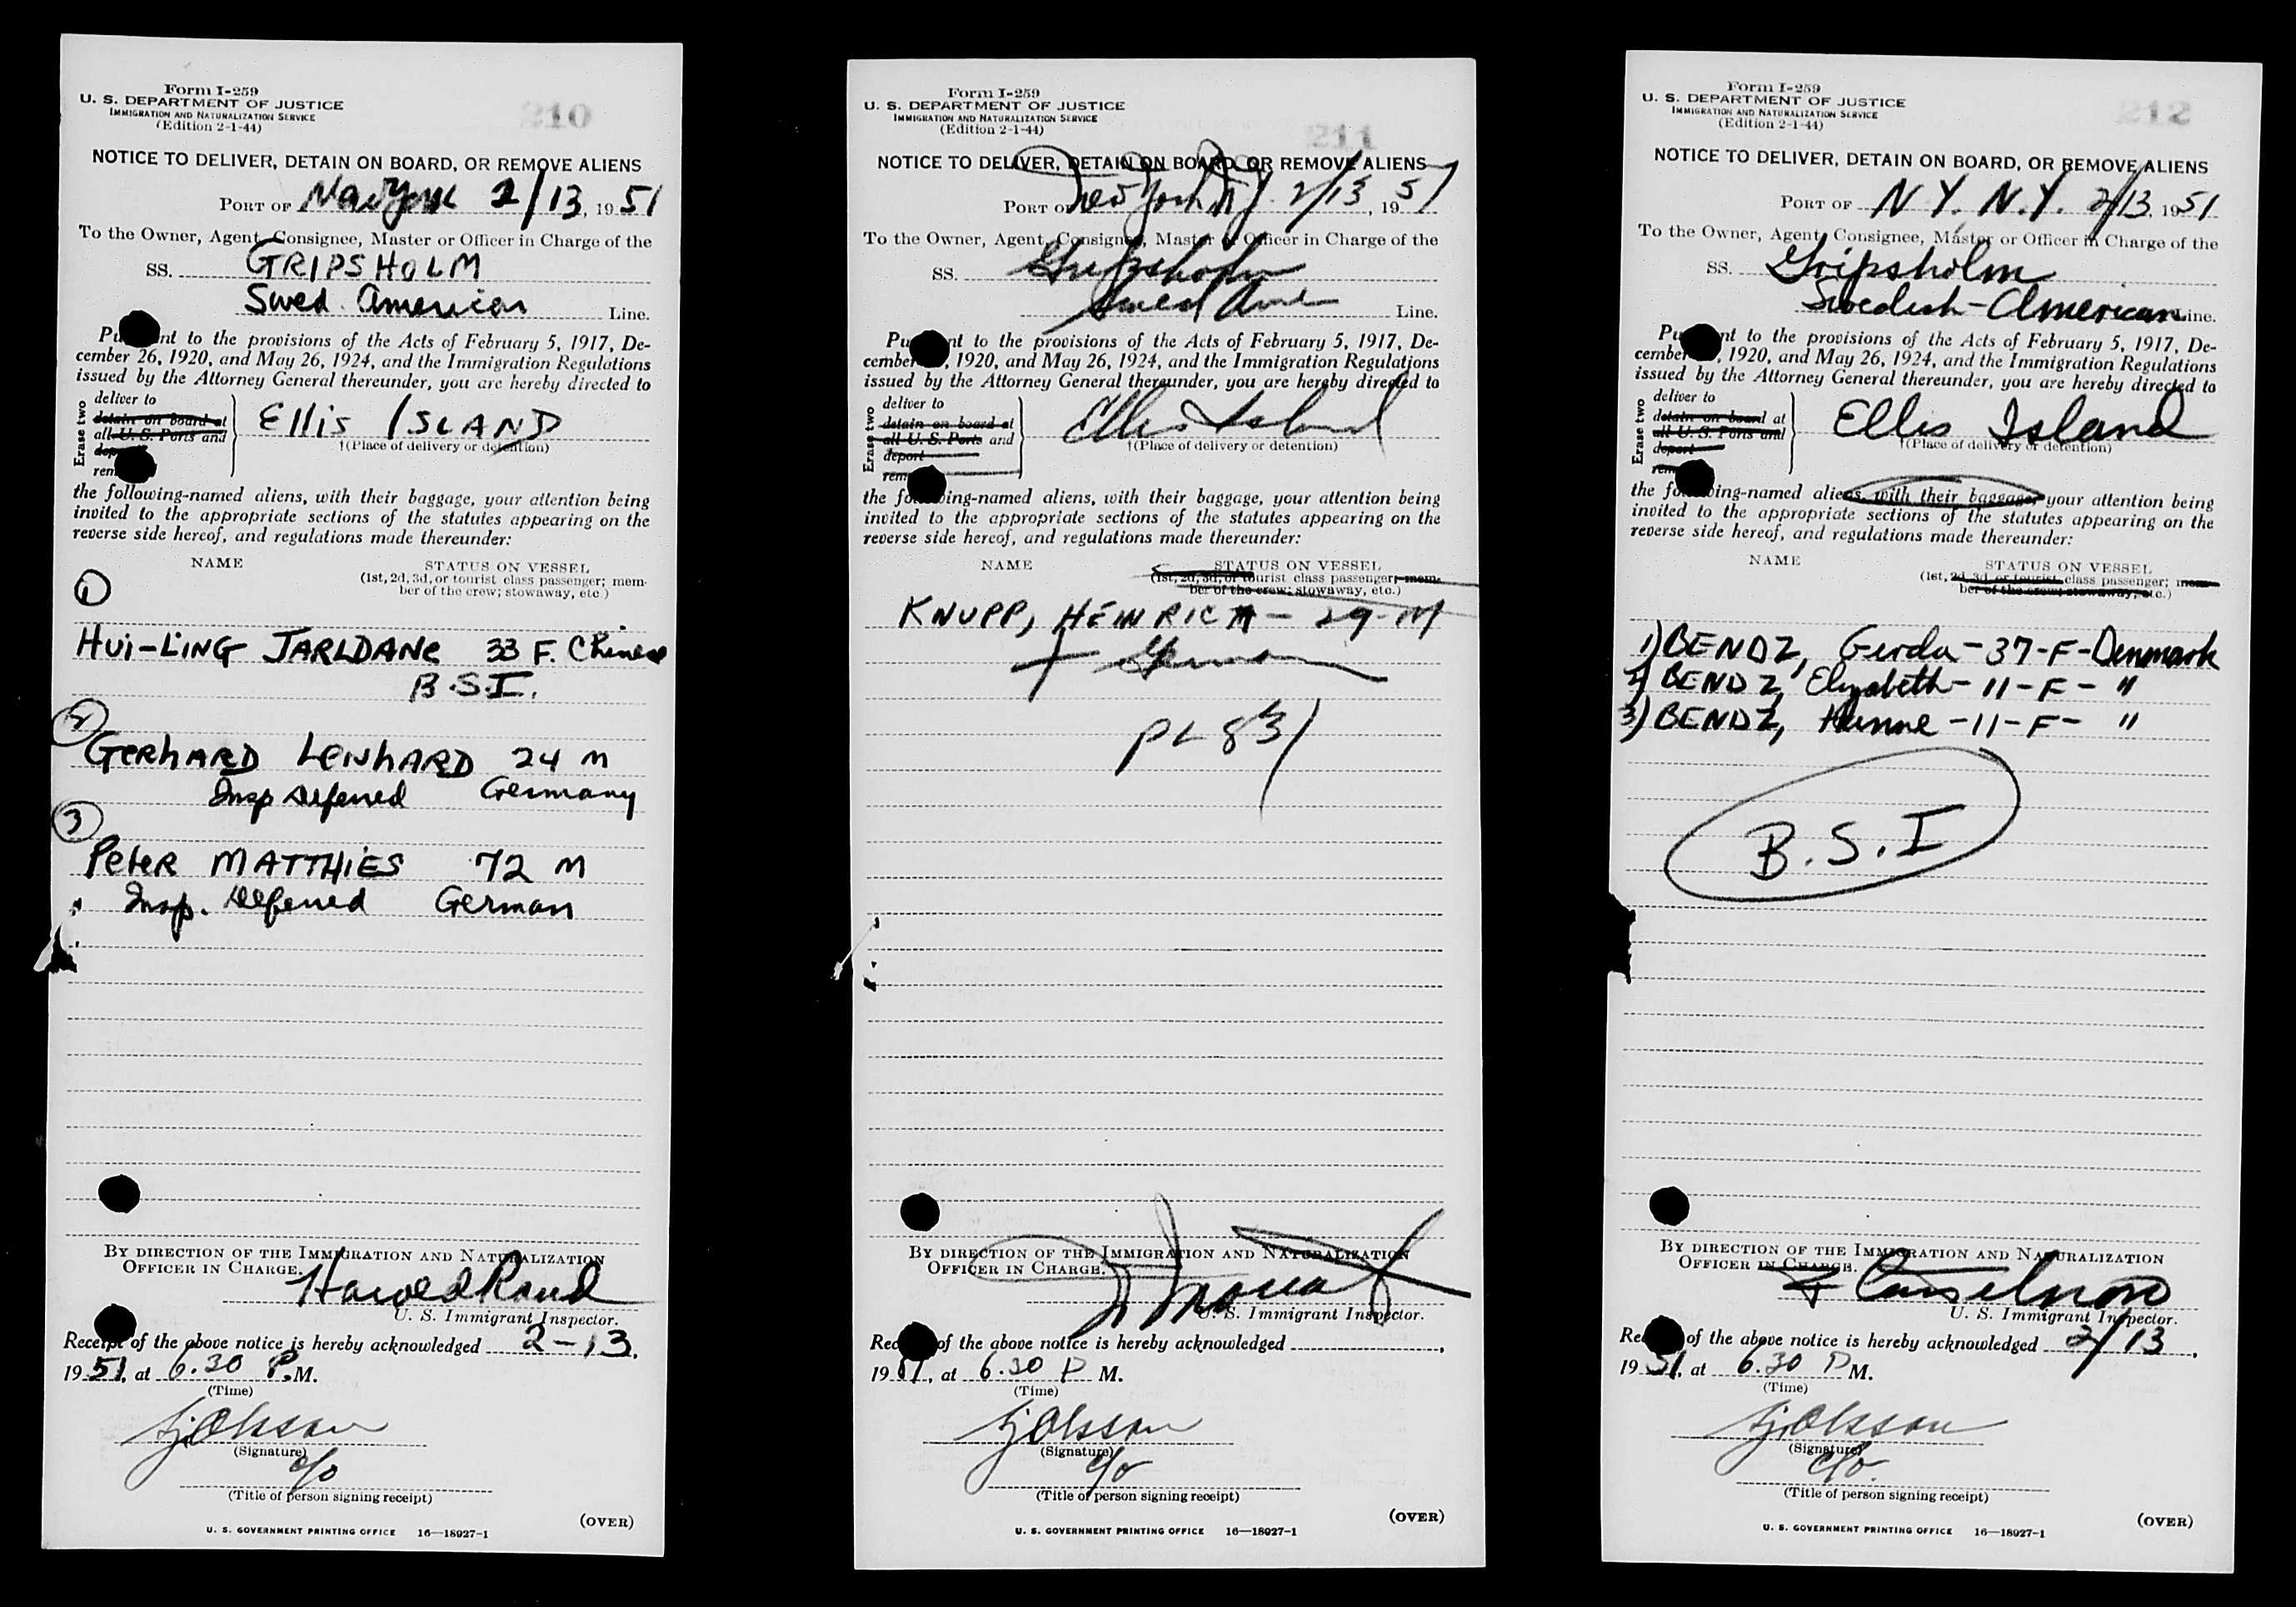 Form I-259
U. S. DEPARTMENT OF JUSTICE
IMMIGRATION AND NATURALIZATION SERVICE
(Edition 2-1-44)
210
NOTICE TO DELIVER, DETAIN ON BOARD, OR REMOVE ALIENS
PORT OF New York 2/13, 1951
To the Owner, Agent, Consignee, Master or Officer in Charge of the
SS. GRIPSHOLM
Swed. American Line.
Pu nt to the provisions of the Acts of February 5, 1917, De-
cember 26, 1920, and May 26, 1924, and the Immigration Regulations
issued by the Attorney General thereunder, you are hereby directed to
Erase two
deliver to
detain on board at
all U. S. Ports and
dep
rem
Ellis ISLAND
†(Place of delivery or detention)
the following-named aliens, with their baggage, your attention being
invited to the appropriate sections of the statutes appearing on the
reverse side hereof, and regulations made thereunder:
NAME STATUS ON VESSEL
(1st, 2d, 3d, or tourist class passenger; mem-
ber of the crew; stowaway, etc.)
1
Hui-LiNG JARLDANe 33 F. Chinese
B.S.I.
2
GerhARD LenhARD 24 M
Insp Deferred Germany
3
Peter MATTHiES 72 M
Insp. Deferred German
BY DIRECTION OF THE IMMIGRATION AND NATURALIZATION
OFFICER IN CHARGE.
Harold Rand
U. S. Immigrant Inspector.
Receipt of the above notice is hereby acknowledged 2-13,
1951, at 6.30 P.M.
(Time)
Olsson
(Signature)
c/o
(Title of person signing receipt)
(OVER)
U. S. GOVERNMENT PRINTING OFFICE 16—18927-1
Form I-259
U. S. DEPARTMENT OF JUSTICE
IMMIGRATION AND NATURALIZATION SERVICE
(Edition 2-1-44)
211
NOTICE TO DELIVER, DETAIN ON BOARD, OR REMOVE ALIENS
PORT OF New York NY 2/13, 1951
To the Owner, Agent, Consignee, Master or Officer in Charge of the
SS. Gripsholm
Swed Ame Line.
Pu nt to the provisions of the Acts of February 5, 1917, De-
cember , 1920, and May 26, 1924, and the Immigration Regulations
issued by the Attorney General thereunder, you are hereby directed to
Erase two
deliver to
detain on board at
all U. S. Ports and
deport
rem
Ellis Island
†(Place of delivery or detention)
the fo ing-named aliens, with their baggage, your attention being
invited to the appropriate sections of the statutes appearing on the
reverse side hereof, and regulations made thereunder:
NAME STATUS ON VESSEL
(1st, 2d, 3d, or tourist class passenger; mem-
ber of the crew; stowaway, etc.)
KNUPP, HEINRICH - 29-M
German
PL 831
BY DIRECTION OF THE IMMIGRATION AND NATURALIZATION
OFFICER IN CHARGE.
U. S. Immigrant Inspector.
Rec of the above notice is hereby acknowledged ,
1951, at 6.30 P M.
(Time)
Olsson
(Signature)
c/o
(Title of person signing receipt)
(OVER)
U. S. GOVERNMENT PRINTING OFFICE 16—18927-1
Form I-259
U. S. DEPARTMENT OF JUSTICE
IMMIGRATION AND NATURALIZATION SERVICE
(Edition 2-1-44)
212
NOTICE TO DELIVER, DETAIN ON BOARD, OR REMOVE ALIENS
PORT OF N.Y. N.Y. 2/13, 1951
To the Owner, Agent, Consignee, Master or Officer in Charge of the
SS. Gripsholm
Swedish-American Line.
Pu nt to the provisions of the Acts of February 5, 1917, De-
cember , 1920, and May 26, 1924, and the Immigration Regulations
issued by the Attorney General thereunder, you are hereby directed to
Erase two
deliver to
detain on board at
all U. S. Ports and
deport
rem
Ellis Island
†(Place of delivery or detention)
the fo ing-named aliens, with their baggage, your attention being
invited to the appropriate sections of the statutes appearing on the
reverse side hereof, and regulations made thereunder:
NAME STATUS ON VESSEL
(1st, 2d, 3d, or tourist class passenger; mem-
ber of the crew; stowaway, etc.)
1) BENDZ, Gerda-37-F-Denmark
2) BENDZ, Elizabeth-11-F- "
3) BENDZ, Hanne-11-F- "
B.S.I
BY DIRECTION OF THE IMMIGRATION AND NATURALIZATION
OFFICER IN CHARGE.
U. S. Immigrant Inspector.
Re of the above notice is hereby acknowledged 2/13,
1951, at 6.30 P M.
(Time)
Olsson
(Signature)
c/o.
(Title of person signing receipt)
(OVER)
U. S. GOVERNMENT PRINTING OFFICE 16—18927-1